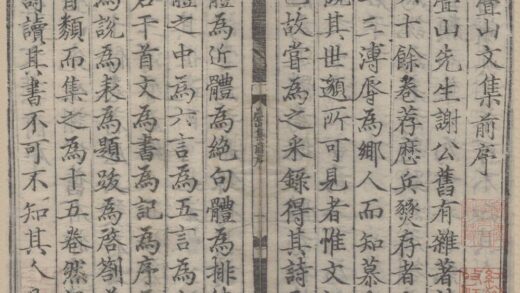 疊山文集前序
疊山先生謝公舊有雜著
十餘卷荐歷兵燹存者
三溥辱為鄉人而知慕
說其世顧所可見者惟文
已故嘗為之采錄得其詩
體為近體為絕句體為排
體之中為六言為五言為
若干首文為書為記為序
為說為表為題跋為啓劄
類而集之為十五卷然
詩讀其書不可不知其人